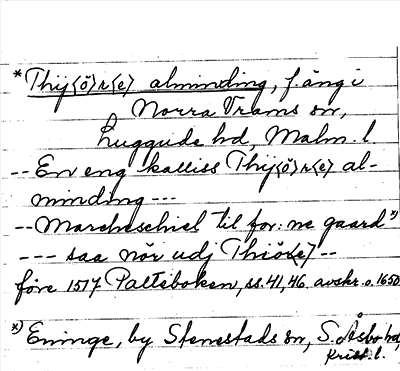 *Thij<ö>r<e> alminding, f. äng i
Norra Vrams sn,
Luggude hd, Malm. l
-- En eng kalliss Thij<ö>r<e> al-
minding ---
-- Marcheschiel til for: ne gaard*)
--- saa nör udj Thiör<e> --
före 1517 Palteboken, ss. 41, 46. avskr. o. 1650.
*) Eninge, by Stenestads sn, S. Åsbo hd,
Krist. l.